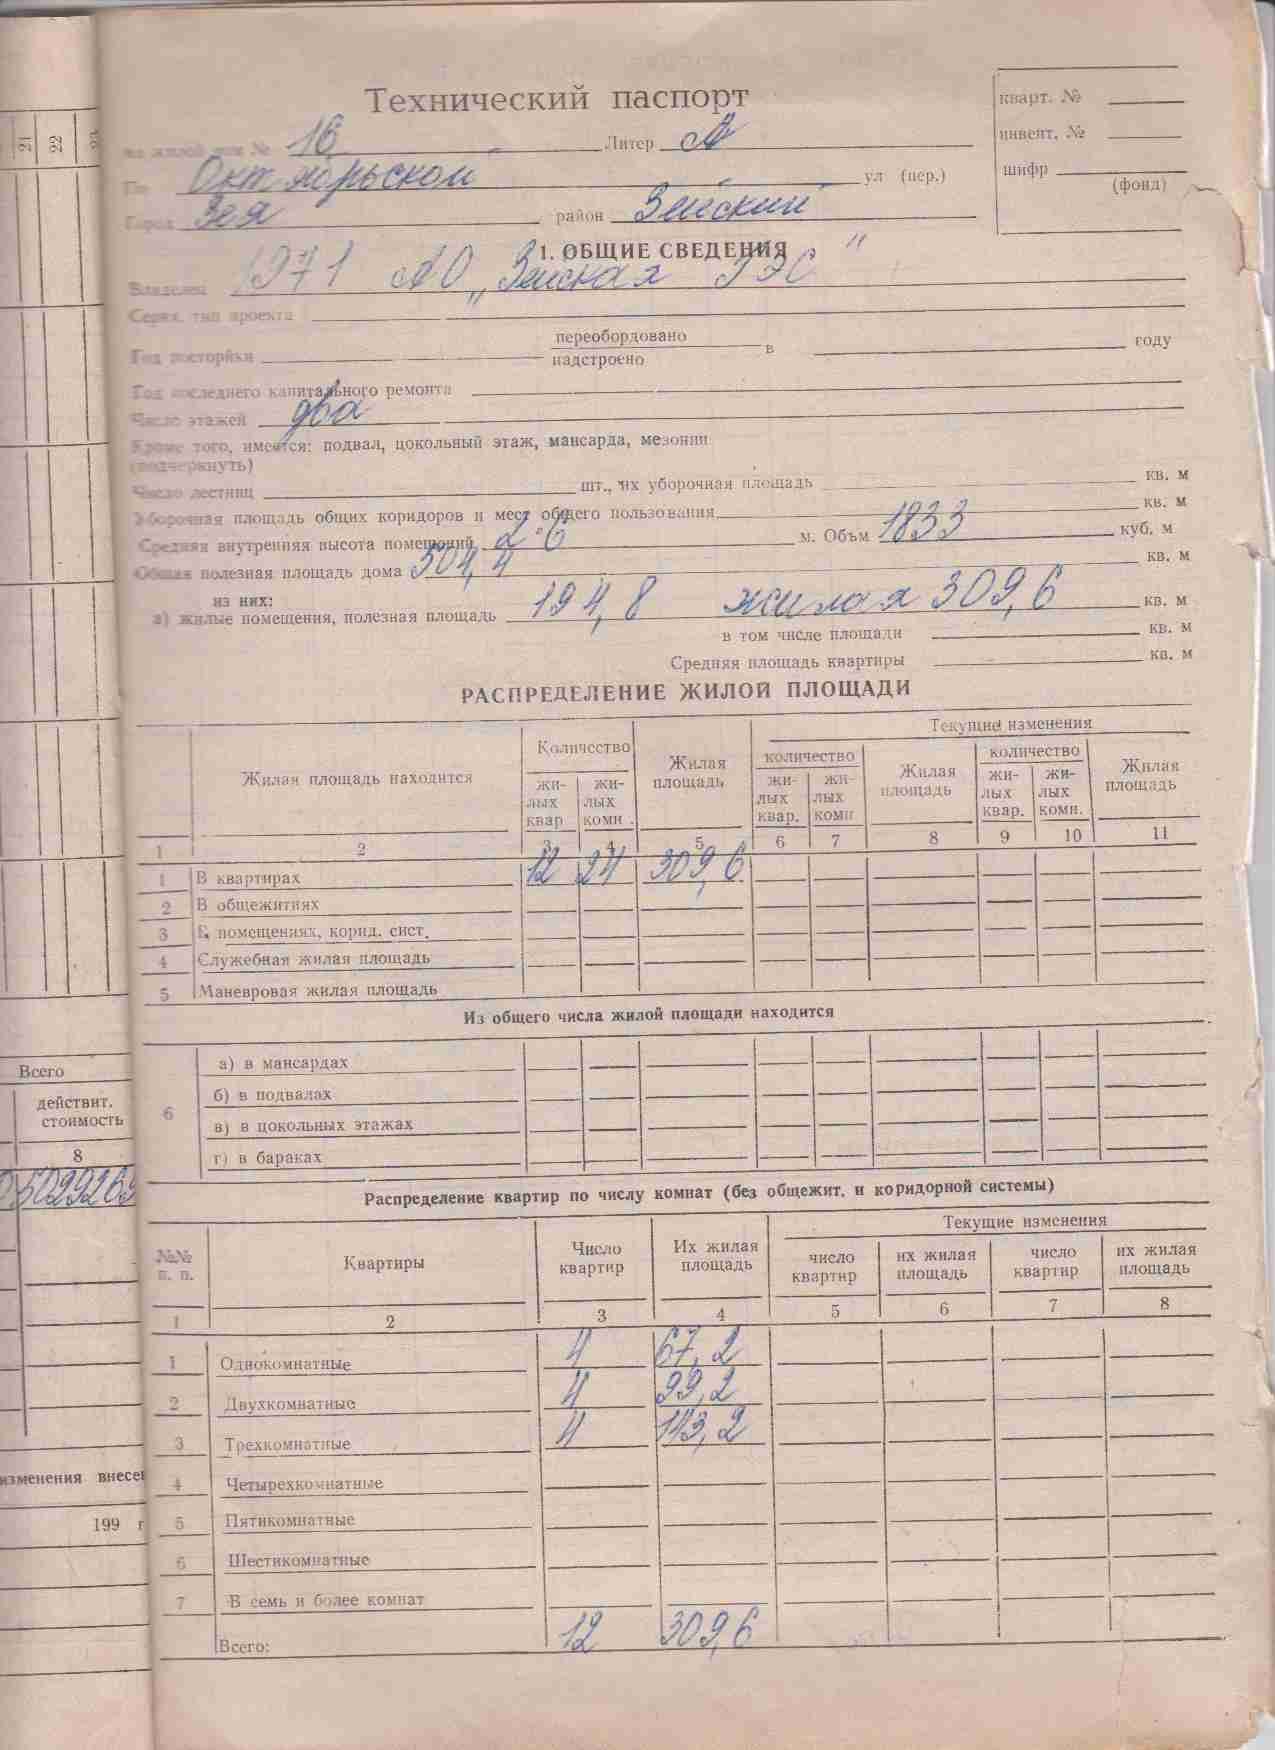 Технический паспорт
кварт. №
инвент. №
шифр
(фонд)
на жилой дом № 16 Литер А
По Октябрьской ул (пер.)
Город Зея район Зейский
1. ОБЩИЕ СВЕДЕНИЯ
Владелец 1971 АО „Зейская ГЭС"
Серия, тип проекта
Год постройки переобордовано в году
надстроено
Год последнего капитального ремонта
Число этажей два
Кроме того, имеется: подвал, цокольный этаж, мансарда, мезонин
(подчеркнуть)
Число лестниц шт., их уборочная площадь кв. м
Уборочная площадь общих коридоров и мест общего пользования кв. м
Средняя внутренняя высота помещений 2.6 м. Объм 1833 куб. м
Общая полезная площадь дома 504,4 кв. м
из них:
а) жилые помещения, полезная площадь 194,8 жилая 309,6 кв. м
в том числе площади кв. м
Средняя площадь квартиры кв. м
РАСПРЕДЕЛЕНИЕ ЖИЛОЙ ПЛОЩАДИ
Жилая площадь находится Количество Жилая площадь Текущие изменения
жилых квар жилых комн. количество жилых квар. жилых комн Жилая площадь количество жилых квар. жилых комн. Жилая площадь
1 2 3 4 5 6 7 8 9 10 11
1 В квартирах 12 24 309,6
2 В общежитиях
3 В помещениях, корид. сист.
4 Служебная жилая площадь
5 Маневровая жилая площадь
Из общего числа жилой площади находится
6 а) в мансардах
б) в подвалах
в) в цокольных этажах
г) в бараках
Распределение квартир по числу комнат (без общежит. и коридорной системы)
№№ п. п. Квартиры Число квартир Их жилая площадь Текущие изменения
число квартир их жилая площадь число квартир их жилая площадь
1 2 3 4 5 6 7 8
1 Однокомнатные 4 67,2
2 Двухкомнатные 4 99,2
3 Трехкомнатные 4 143,2
4 Четырехкомнатные
5 Пятикомнатные
6 Шестикомнатные
7 В семь и более комнат
Всего: 12 309,6
21 22 23
Всего
действит.
стоимость
8
5029269
изменения внесе
199 г